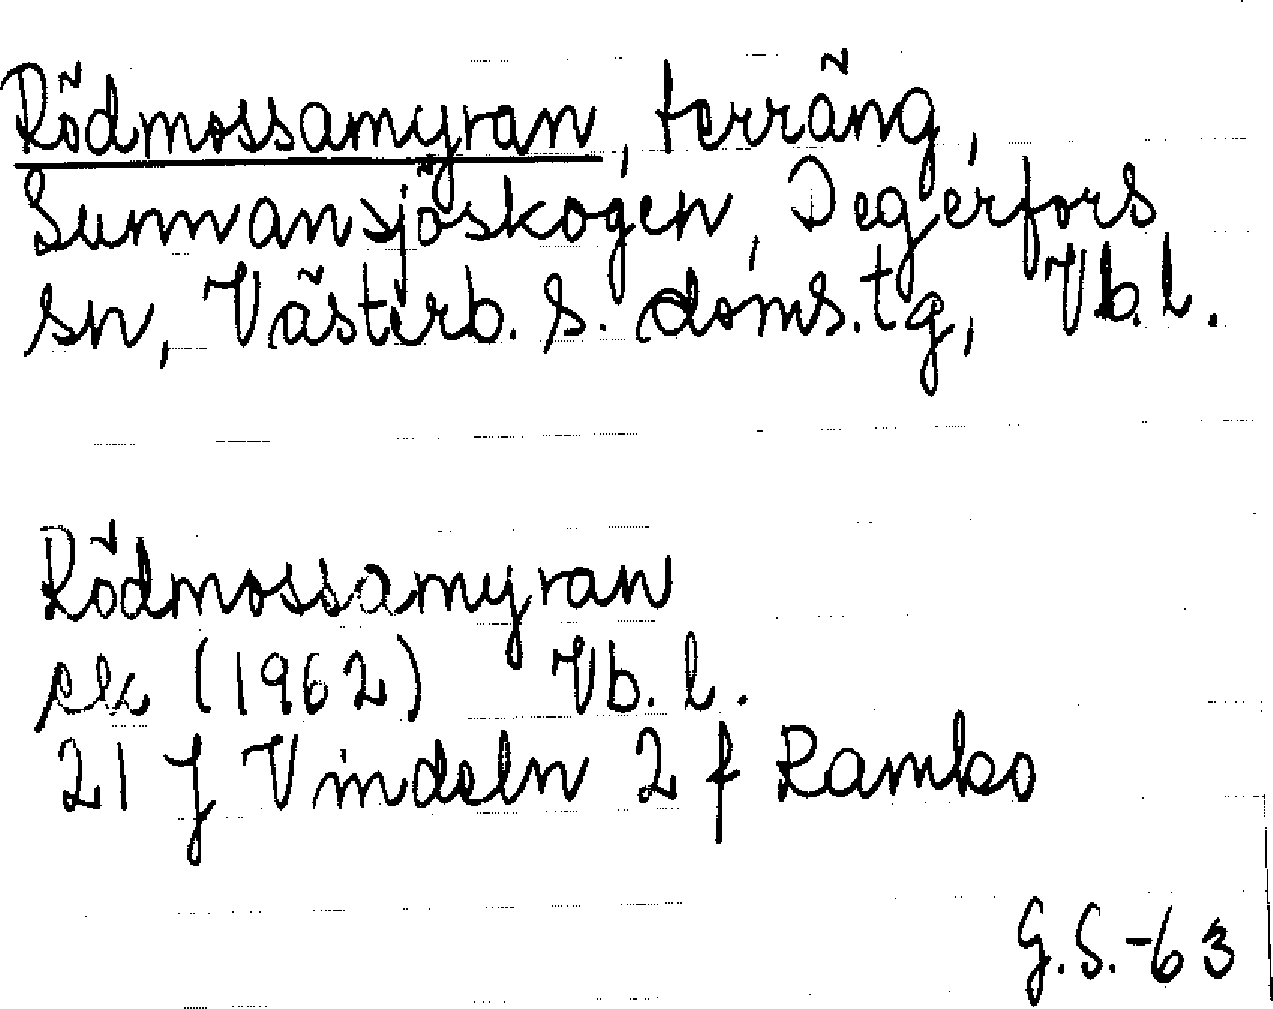 Rödmossamyran, terräng,
Sunnansjöskogen, Degerfors
sn, Västerb. s. doms.tg, Vb.l.
Rödmossamyran
ek (1962) Vb. l.
21 J Vindeln 2 f Rambo
G.S.-63